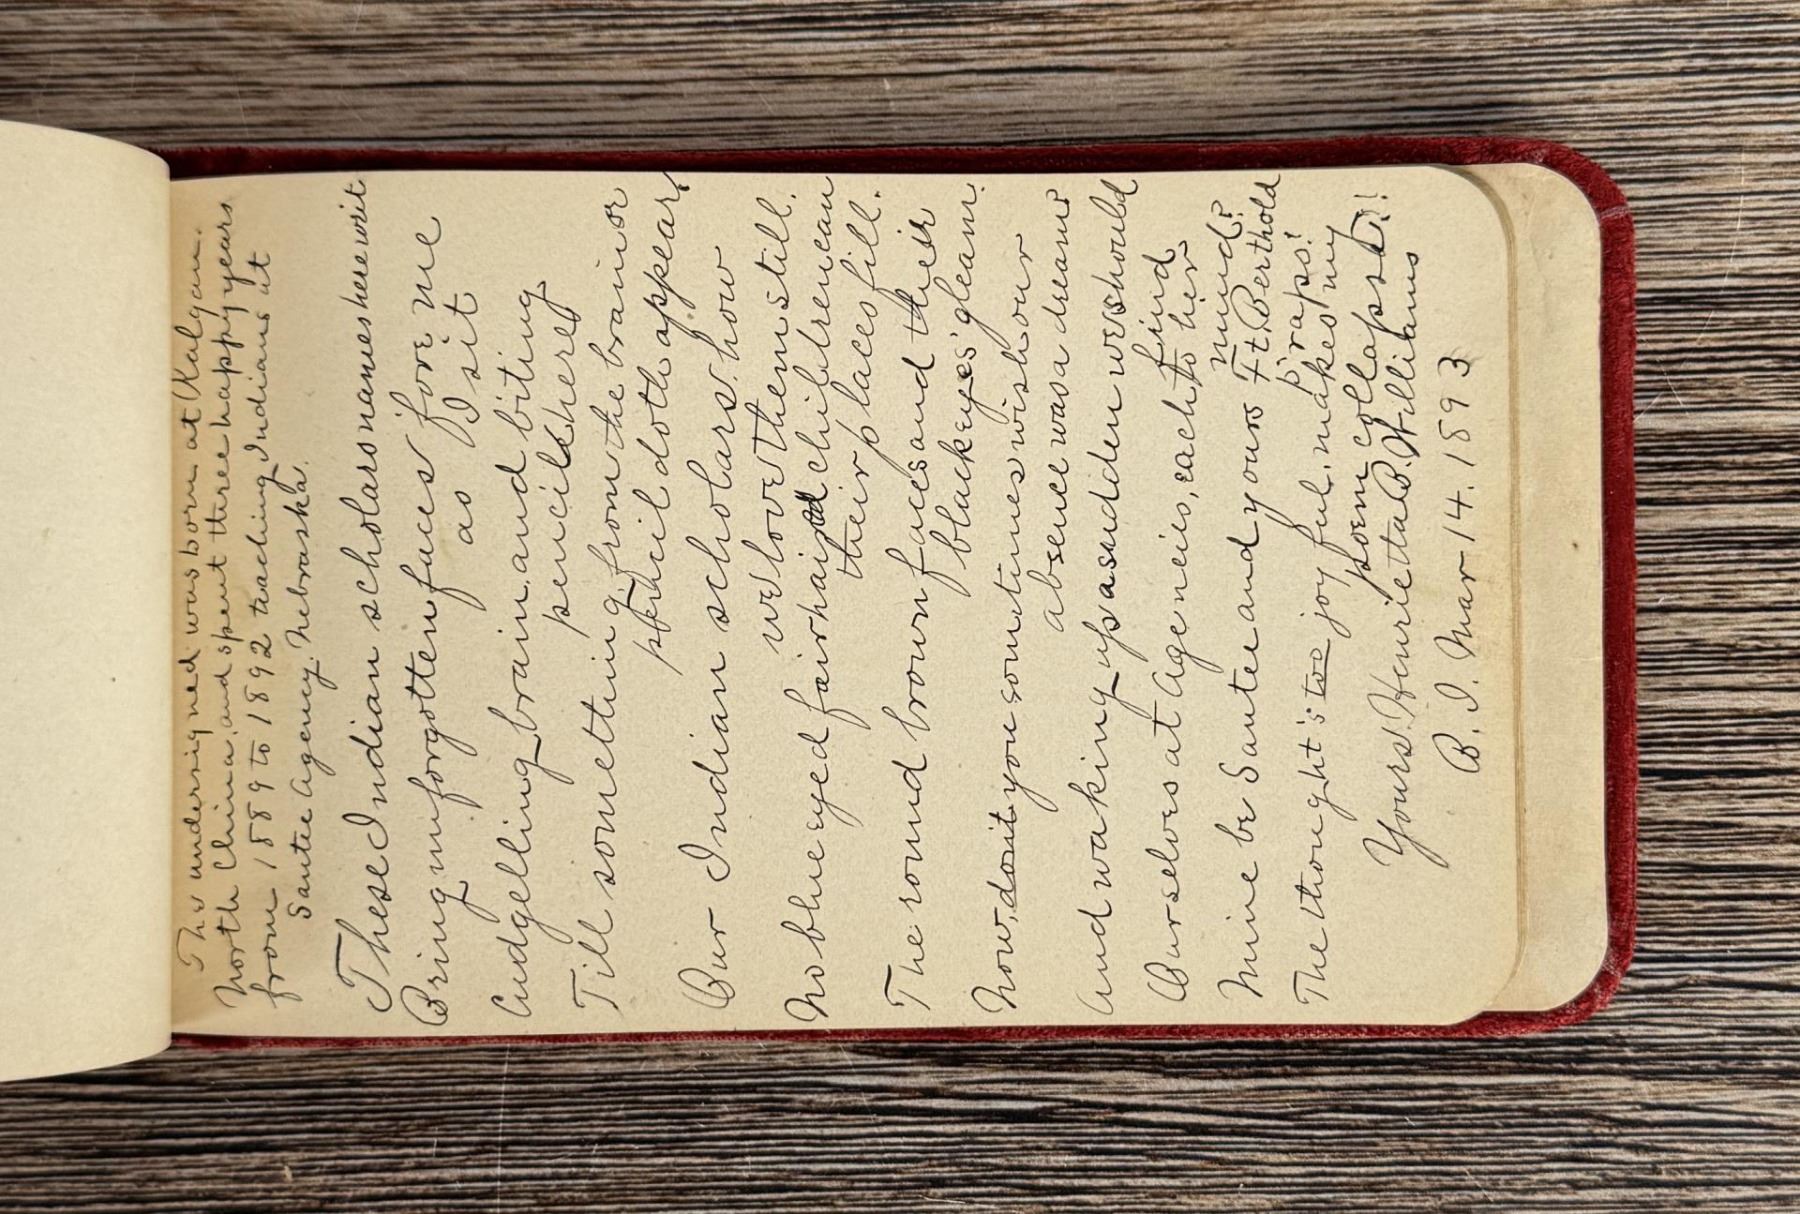 The undersigned was born at Kalgan.
North China, and spent three happy years
from 1889 to 1892 teaching Indians at
Santee Agency. Nebraska.
These Indian scholars names herewit
Bring unforgotten faces fore me
as I sit
Cudgelling brain, and biting
pencil here,
Till something, from the brain or
pencil doth appear,
Our Indian scholars, how
we love them still.
No blue eyed fair haired children can
their places fill.
The round brown faces and their
black eyes' gleam.
Now, don't you sometimes wish our
absence was a dream?
And waking up a sudden we should
find
Ourselves at Agencies, each to her
mind?
Mine be Santee and yours Ft. Berthold
p'raps!
The thought's too joyful, makes my
poem collapse!!
Yours. Henrietta B. Williams
B. I. Mar 14. 1893